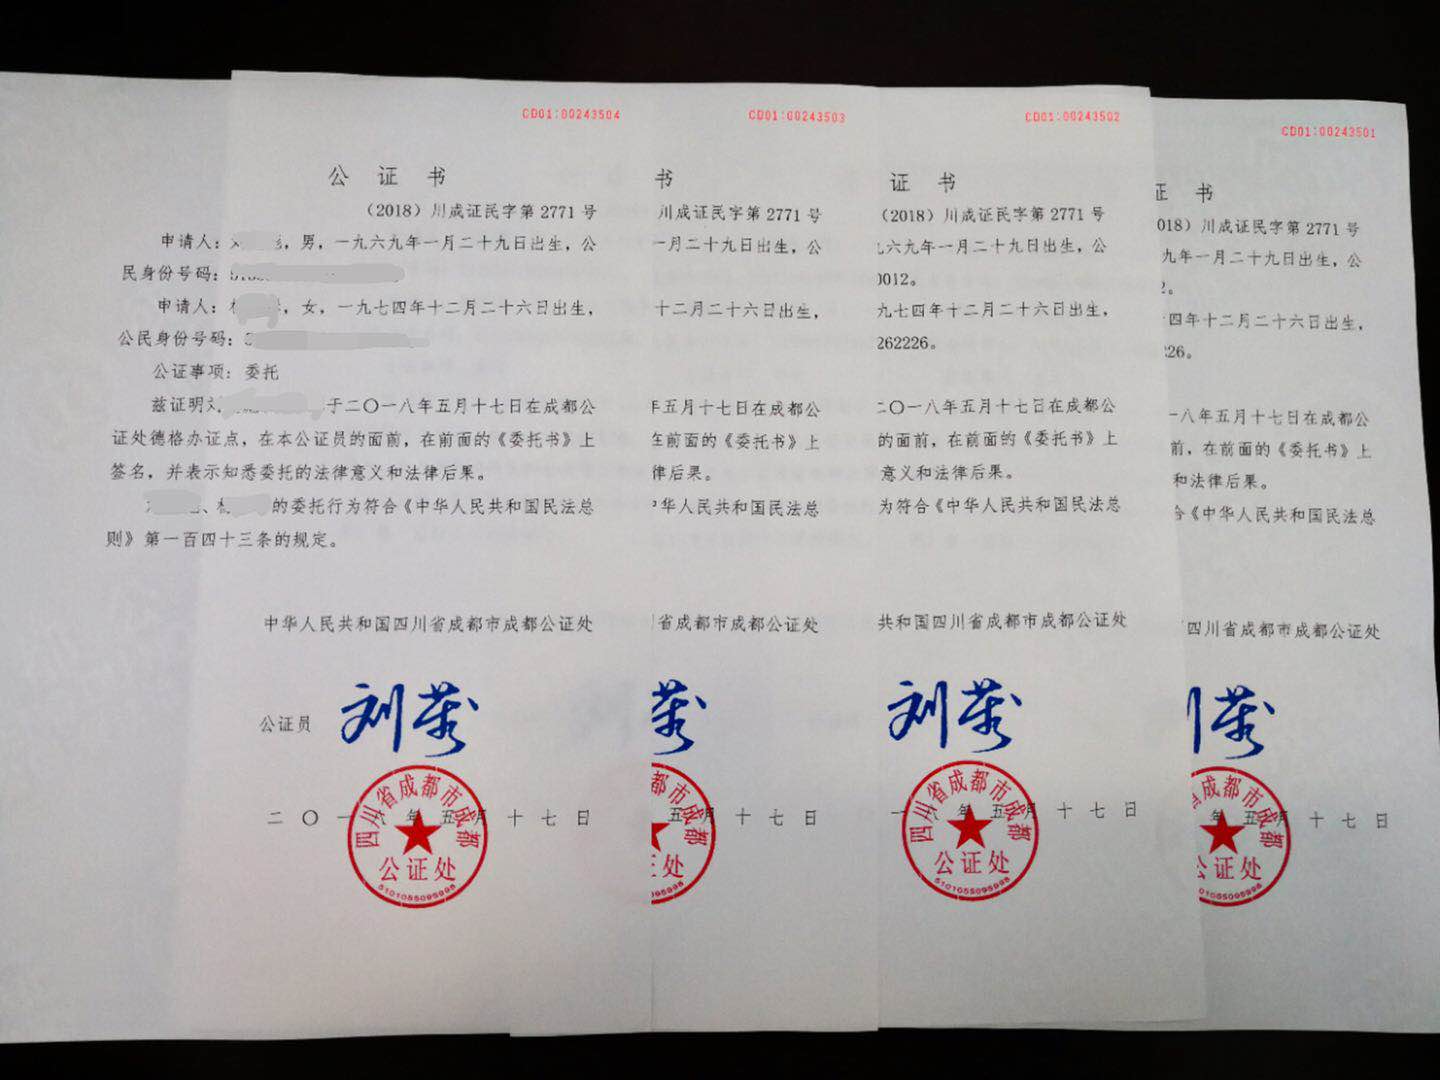 CD01:00243504
公 证 书
（2018）川成证民字第 2771 号
申请人：，男，一九六九年一月二十九日出生，公
民身份号码：
申请人：，女，一九七四年十二月二十六日出生，
公民身份号码：
公证事项：委托
兹证明刘于二〇一八年五月十七日在成都公
证处德格办证点，在本公证员的面前，在前面的《委托书》上
签名，并表示知悉委托的法律意义和法律后果。
、的委托行为符合《中华人民共和国民法总
则》第一百四十三条的规定。
中华人民共和国四川省成都市成都公证处
公证员
刘
二〇一八年五月十七日
四川省成都市成都
公证处
5101055095998
CD01:00243503
书
川成证民字第 2771 号
一月二十九日出生，公
十二月二十六日出生，
年五月十七日在成都公
在前面的《委托书》上
律后果。
中华人民共和国民法总
川省成都市成都公证处
五月十七日
成都市成都
证处
5095998
CD01:00243502
证 书
（2018）川成证民字第 2771 号
九六九年一月二十九日出生，公
0012。
九七四年十二月二十六日出生，
262226。
二〇一八年五月十七日在成都公
的面前，在前面的《委托书》上
意义和法律后果。
为符合《中华人民共和国民法总
共和国四川省成都市成都公证处
刘
一八年五月十七日
四川省成都市成都
公证处
5101055095998
CD01:00243501
证 书
018）川成证民字第 2771 号
九年一月二十九日出生，公
2。
四年十二月二十六日出生，
226。
一八年五月十七日在成都公
前，在前面的《委托书》上
和法律后果。
合《中华人民共和国民法总
四川省成都市成都公证处
年五月十七日
成都市成都
公证处
5095998